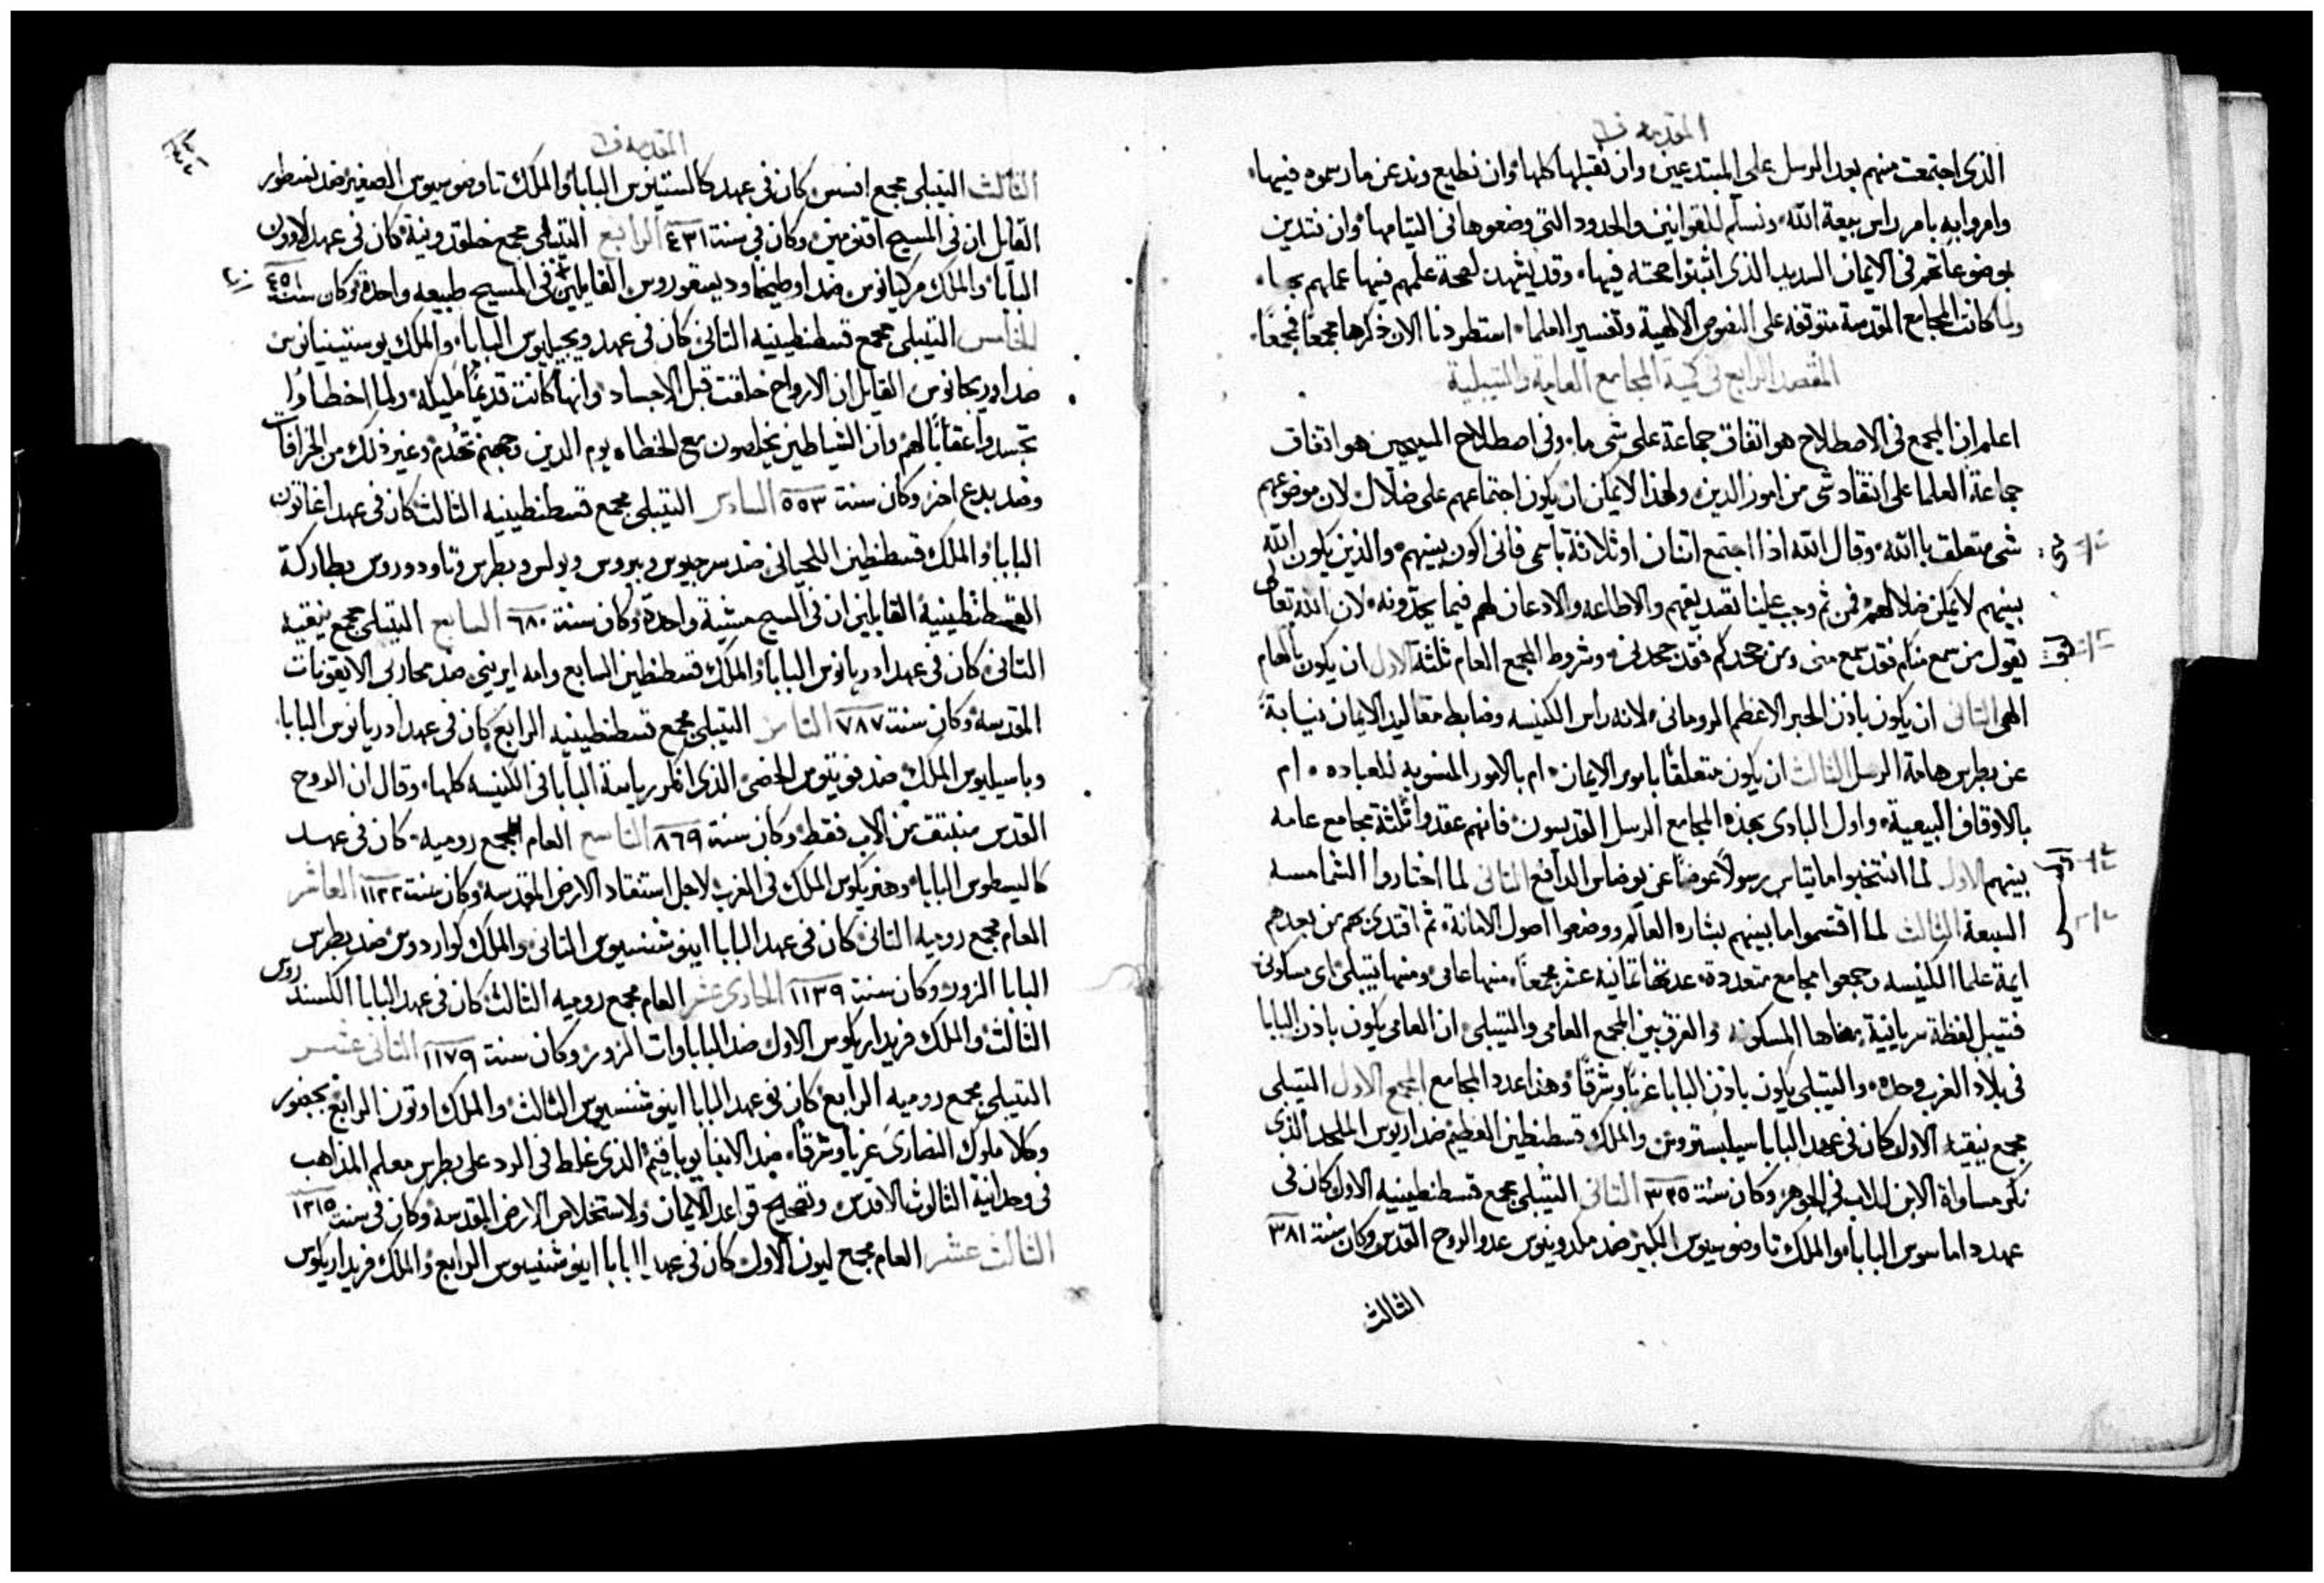 المقدمة ف
الذى اجتمعت منهم بعد الرسل على المبتدعين وان نقبلها كلها وان نطيع ونذعن ما رسموه فيها
وامروا به بامر راس بيعة الله ونسلم للقوانين والحدود التى وضعوها فى التيامها وان نتدين
بوضوعاتهم فى الايمان السديد الذى اثبتوا صحته فيها وقد يشهد لصحة علمهم فيها عملهم بها
ولما كانت المجامع المقدسة متوقفه على النصوص الالهية وتفسير العلما استطردنا الان ذكرها مجمعًا فمجمعًا
المقصد الرابع فى كمية المجامع العامة والتيبلية
اعلم ان المجمع فى الاصطلاح هو اتفاق جماعة على شى ما وفى اصطلاح المسيحيين هو اتفاق
جماعة العلما على انتقاد شى من امور الدين ولهذا لا يمكن ان يكون اجتماعهم على ضلال لان موضوعهم
شى متعلق بالله وقال الله اذا اجتمع اتنان او ثلاثة باسمى فانى اكون بينهم والذين يكون الله
بينهم لا يمكن ضلالهم فمن ثم وجب علينا تصديقهم والاطاعه والادعان لهم فيما يحدّونه لان الله تعالى
يقول من سمع منكم فقد سمع منى ومن جحدكم فقد جحدنى وشروط المجمع العام ثلثة الاول ان يكون بالهام
الهى التانى ان يكون باذن الحبر الاعظم الرومانى لانه راس الكنيسه وضابط مقاليد الايمان نيابةً
عن بطرس هامة الرسل الثالث ان يكون متعلقًا بامور الايمان ام بالامور المنسوبه للعباده ام
بالاوقاف البيعية واول البادى بهذه المجامع الرسل القديسون فانهم عقدوا ثلثة مجامع عامه
بينهم الاول لما انتخبوا ماتياس رسولاً عوضًا عن يوضاس الدافع التانى لما اختاروا الشمامسه
السبعة الثالث لما اقتسموا ما بينهم بشارة العالم ووضعوا اصول الامانة ثم اقتدى بهم من بعدهم
ايمة علما الكنيسه وجمعوا مجامع متعددة عدتها تمانيه عشر مجمعًا منها عامى ومنها تيبلى اى مسكونى
فتيبل لفظة سريانية معناها المسكونه والفرق بين المجمع العامى والتيبلى ان العامى يكون باذن البابا
فى بلاد الغرب وحده والتيبلى يكون باذن البابا غربًا وشرقًا وهذا عدد المجامع المجمع الاول التيبلى
مجمع نيقيه الاول كان فى عهد البابا سيلبستروس والملك قسطنطين العظيم ضد اريوس الملحد الذى
نكر مساواة الابن للاب فى الجوهر وكان سنة ٣٢٥ التانى التيبلى مجمع قسطنطينيه الاول كان فى
عهد داماسوس البابا والملك تاوضوسيوس الكبير ضد مكدونيوس عدو الروح القدس وكان سنة ٣٨١
الثالث
المقدمة ف
الثالث التيبلى مجمع افسس كان فى عهد كالستينوس البابا والملك تاوضوسيوس الصغير ضد نسطور
القايل ان فى المسيح اقنومين وكان فى سنة ٤٣١ الرابع التيبلى مجمع خلقدونية كان فى عهد لاوون
البابا والملك مركيانوس ضد اوطيخا وديسقوروس القايلين فى المسيح طبيعه واحدة وكان سنة ٤٥١
الخامس التيبلى مجمع قسطنطينيه التانى كان فى عهد ويجيليوس البابا والملك يوستينيانوس
ضد اوريجانوس القايل ان الارواح خلقت قبل الاجساد وانها كانت قديمًا مليكه ولما اخطاوا
تجسدوا عقابًا لهم وان الشياطين يخلصون مع الخطاه يوم الدين وجهنم تعدم وغير ذلك من الخرافات
وضد بدع اخر وكان سنة ٥٥٣ السادس التيبلى مجمع قسطنطينيه الثالث كان فى عهد اغاتون
البابا والملك قسطنطين اللحيانى ضد سرجيوس وبيروس وبولس وبطرس وتاودوروس بطاركة
القسطنطينية القايلين ان فى المسيح مشية واحدة وكان سنة ٦٨٠ السابع التيبلى مجمع نيقيه
التانى كان فى عهد ادريانوس البابا والملك قسطنطين السابع وامه ايرينى ضد محاربى الايقونات
المقدسة وكان سنة ٧٨٧ الثامن التيبلى مجمع قسطنطينيه الرابع كان فى عهد ادريانوس البابا
وباسيليوس الملك ضد فوتيوس الخصى الذى انكر رياسة البابا فى الكنيسه كلها وقال ان الروح
القدس منبتق من الاب فقط وكان سنة ٨٦٩ التاسع العام مجمع رومية كان فى عهد
كاليسطوس البابا وهنريكوس الملك فى الغرب لاجل استنقاد الارض المقدسه وكان سنة ١١٢٢ العاشر
العام مجمع روميه التانى كان فى عهد البابا اينوشنسيوس التانى والملك كواردوس ضد بطرس
البابا الزور وكان سنة ١١٣٩ الحادى عشر العام مجمع روميه الثالث كان فى عهد البابا الكسندروس
الثالث والملك فريداريكوس الاول ضد الباباوات الزور وكان سنة ١١٧٩ الثانى عشر
التيبلى مجمع روميه الرابع كان فى عهد البابا اينوشنسيوس الثالث والملك اوتون الرابع بحضور
وكلا ملوك النصارى غربا وشرقا ضد الانبا يوياقيم الذى غلط فى الرد على بطرس معلم المذاهب
فى وحدانية الثالوث الاقدس وتصحيح قواعد الايمان ولاستخلاص الارض المقدسه وكان فى سنة ١٢١٥
الثالث عشر العام مجمع ليون الاول كان فى عهد البابا اينوشنسيوس الرابع والملك فريداريكوس